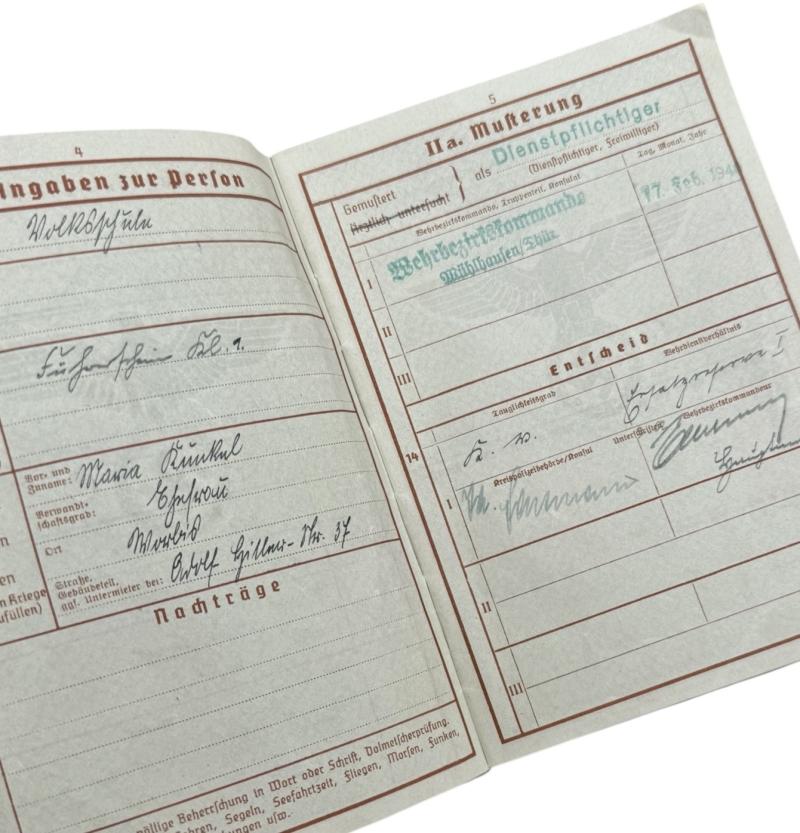 4
Angaben zur Person
Volksschule
Führerschein Kl. 1.
Vor- und
Zuname: Maria Kunkel
Verwandt-
schaftsgrad: Ehefrau
Ort Worbis
Straße,
Gebäudeteil,
ggf. Untermieter bei: Adolf Hitler-Str. 37
en
n Kriege
füllen)
Nachträge
Beherrschung in Wort oder Schrift, Dolmetscherprüfung.
Segeln, Seefahrtzeit, Fliegen, Morsen, Funken,
usw.
5
IIa. Musterung
Gemustert
Ärztlich untersucht
als Dienstpflichtiger
(Dienstpflichtiger, Freiwilliger)
Wehrbezirkskommando, Truppenteil, Konsulat
Tag, Monat, Jahr
I
Wehrbezirkskommando
Mühlhausen/Thür.
17. Feb. 194
II
III
Entscheid
Tauglichkeitsgrad
Wehrdienstverhältnis
14
K. v.
Ersatzreserve I
Kreispolizeibehörde/Konsul
Unterschriften
Wehrbezirkskommandeur
I
Hauptm
II
III